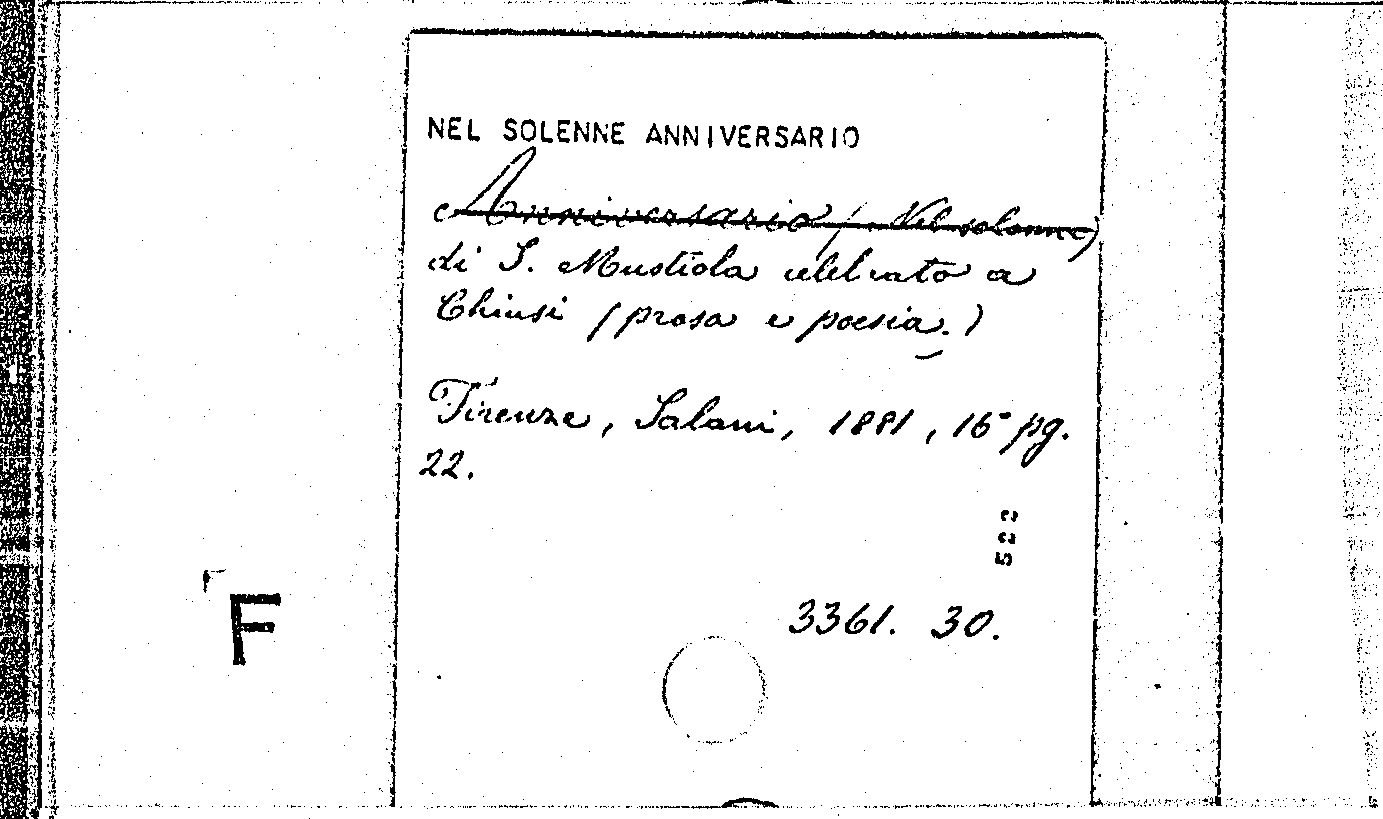 NEL SOLENNE ANNIVERSARIO
Anniversario (Nel solenne)
di S. Mustiola celebrato a
Chiusi (prosa e poesia.)
Firenze, Salani, 1881, 16° pg.
22.
522
3361. 30.
F